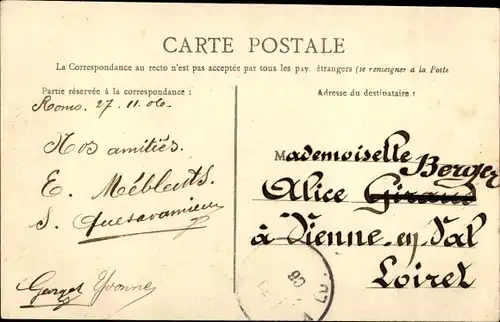 CARTE POSTALE
La Correspondance au recto n'est pas acceptée par tous les pay. étrangers (se renseigner à la Poste
Partie réservée à la correspondance :
27. 11. 06.
Nos amitiés.
E.
S.
Georget Yvonne
Adresse du destinataire :
Mademoiselle
Berger
Alice Giraud
à Vienne-en-Val
Loiret